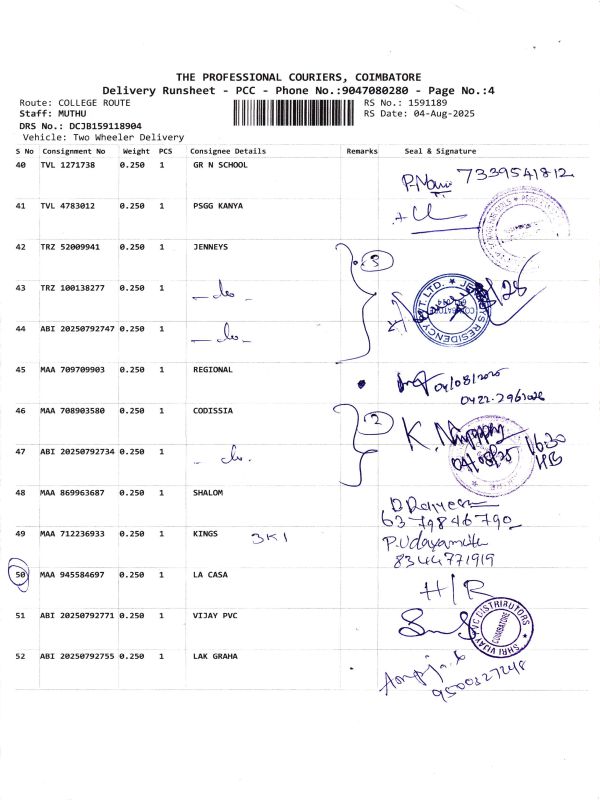 THE PROFESSIONAL COURIERS, COIMBATORE
Delivery Runsheet - PCC - Phone No.:9047080280 - Page No.:4
Route: COLLEGE ROUTE RS No.: 1591189
Staff: MUTHU RS Date: 04-Aug-2025
DRS No.: DCJB159118904
Vehicle: Two Wheeler Delivery
S No Consignment No Weight PCS Consignee Details Remarks Seal & Signature
40 TVL 1271738 0.250 1 GR N SCHOOL 7339541812
41 TVL 4783012 0.250 1 PSGG KANYA
42 TRZ 52009941 0.250 1 JENNEYS 3
43 TRZ 100138277 0.250 1 -do-
44 ABI 20250792747 0.250 1 -do-
45 MAA 709709903 0.250 1 REGIONAL 04/08/2025
0422-2962026
46 MAA 708903580 0.250 1 CODISSIA 2 K.
47 ABI 20250792734 0.250 1 - do. 04/08/25 16:30
48 MAA 869963687 0.250 1 SHALOM
6379846790
49 MAA 712236933 0.250 1 KINGS 3K1 P.Udaya
8344771919
50 MAA 945584697 0.250 1 LA CASA H/R
51 ABI 20250792771 0.250 1 VIJAY PVC SHRI VIJAY PVC DISTRIBUTORS COIMBATORE
52 ABI 20250792755 0.250 1 LAK GRAHA
9500327248